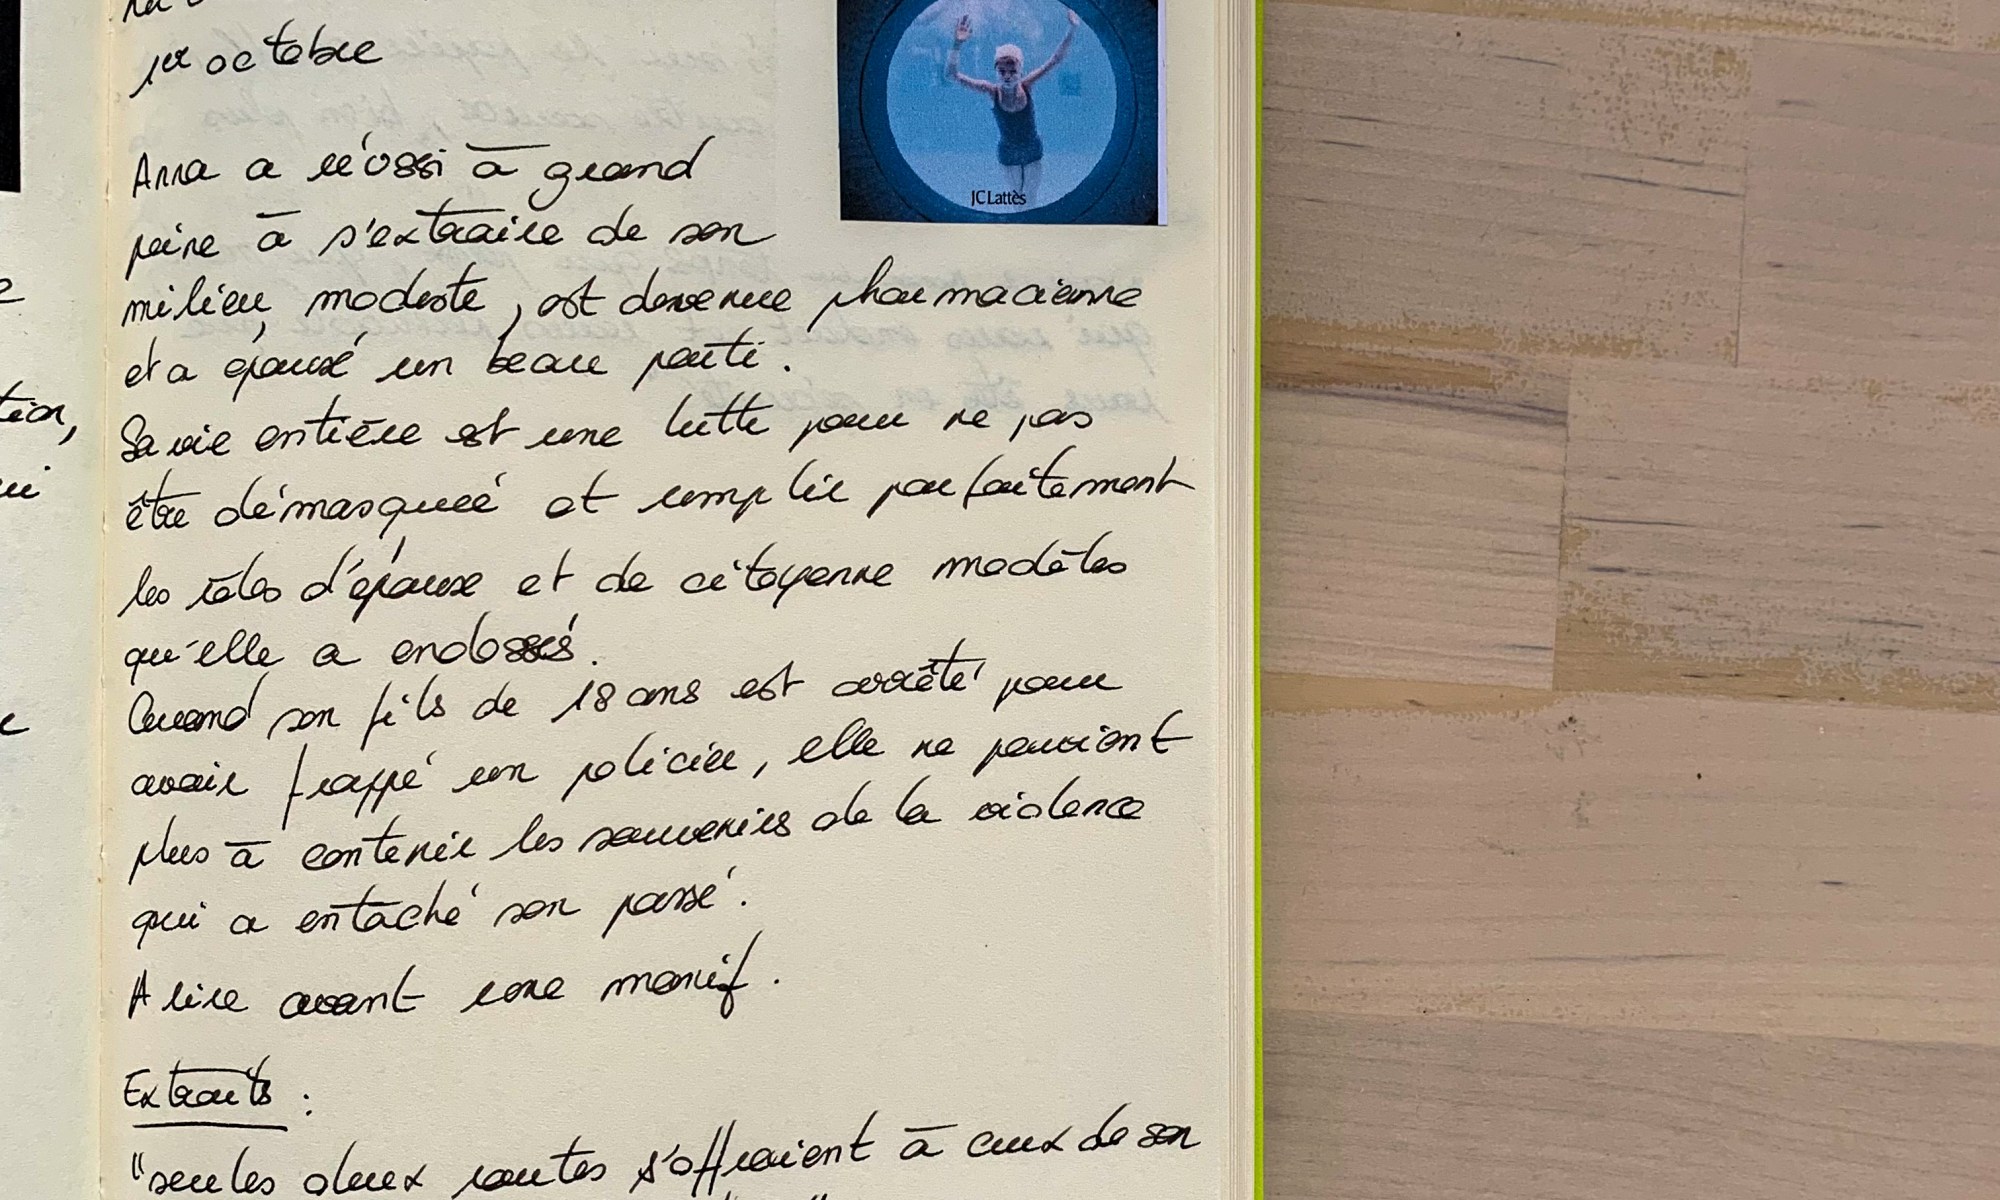 1er octobre
JC Lattès
Anna a réussi à grand
peine à s'extraire de son
milieu modeste, est devenue pharmacienne
et a épousé un beau parti.
Sa vie entière est une lutte pour ne pas
être démasquée et remplir parfaitement
les rôles d'épouse et de citoyenne modèles
qu'elle a endossés.
Quand son fils de 18 ans est arrêté pour
avoir frappé un policier, elle ne parvient
plus à contenir les souvenirs de la violence
qui a entaché son passé.
A lire avant une manif.
Extraits :
"seules deux routes s'offraient à ceux de son